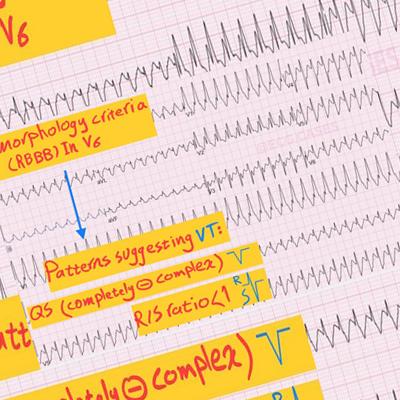 V6
morphology criteria
(RBBB) In V6
aVL
aVF
III
V1
V2
V3
V4
V6
Patterns suggesting VT:
QS (completely ⊖ complex)
R/S ratio<1 R S
att
pletely ⊖ complex)
R